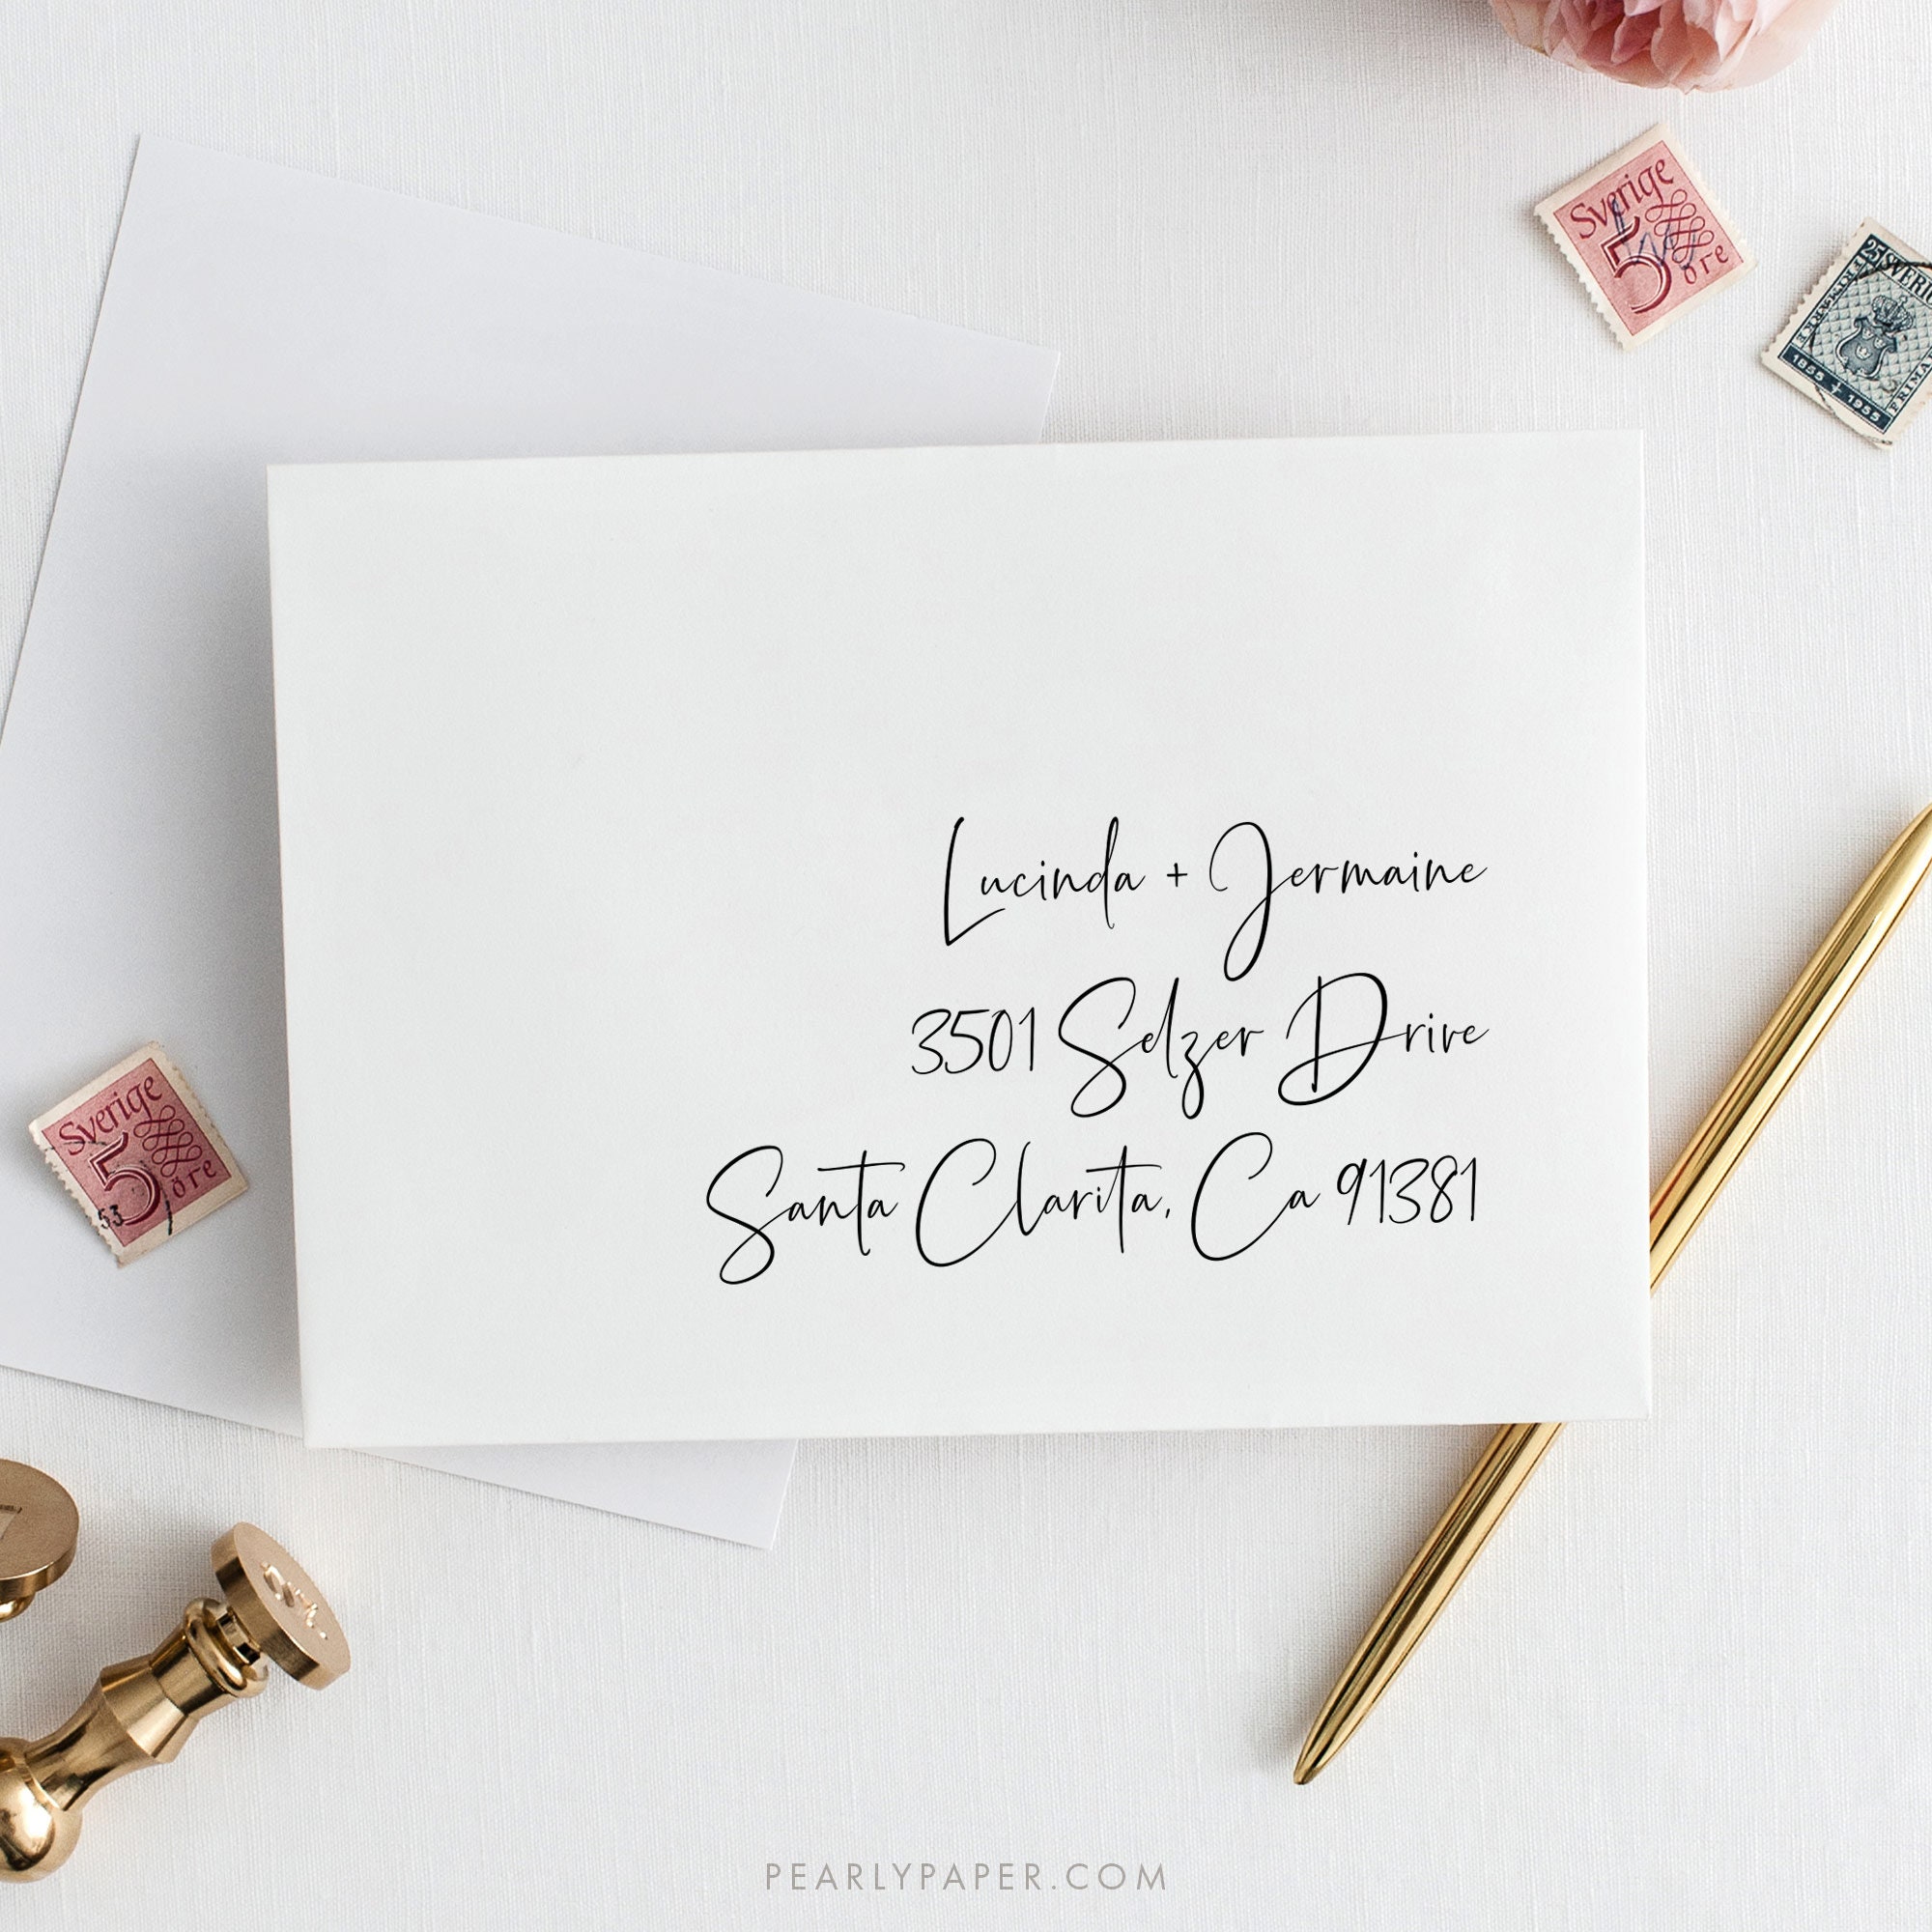 Sverige
5
öre
25 SVERI
1855 1955
FRIMÄ
Lucinda + Jermaine
3501 Selzer Drive
Santa Clarita, Ca 91381
Sverige
5
öre
53
PEARLYPAPER.COM